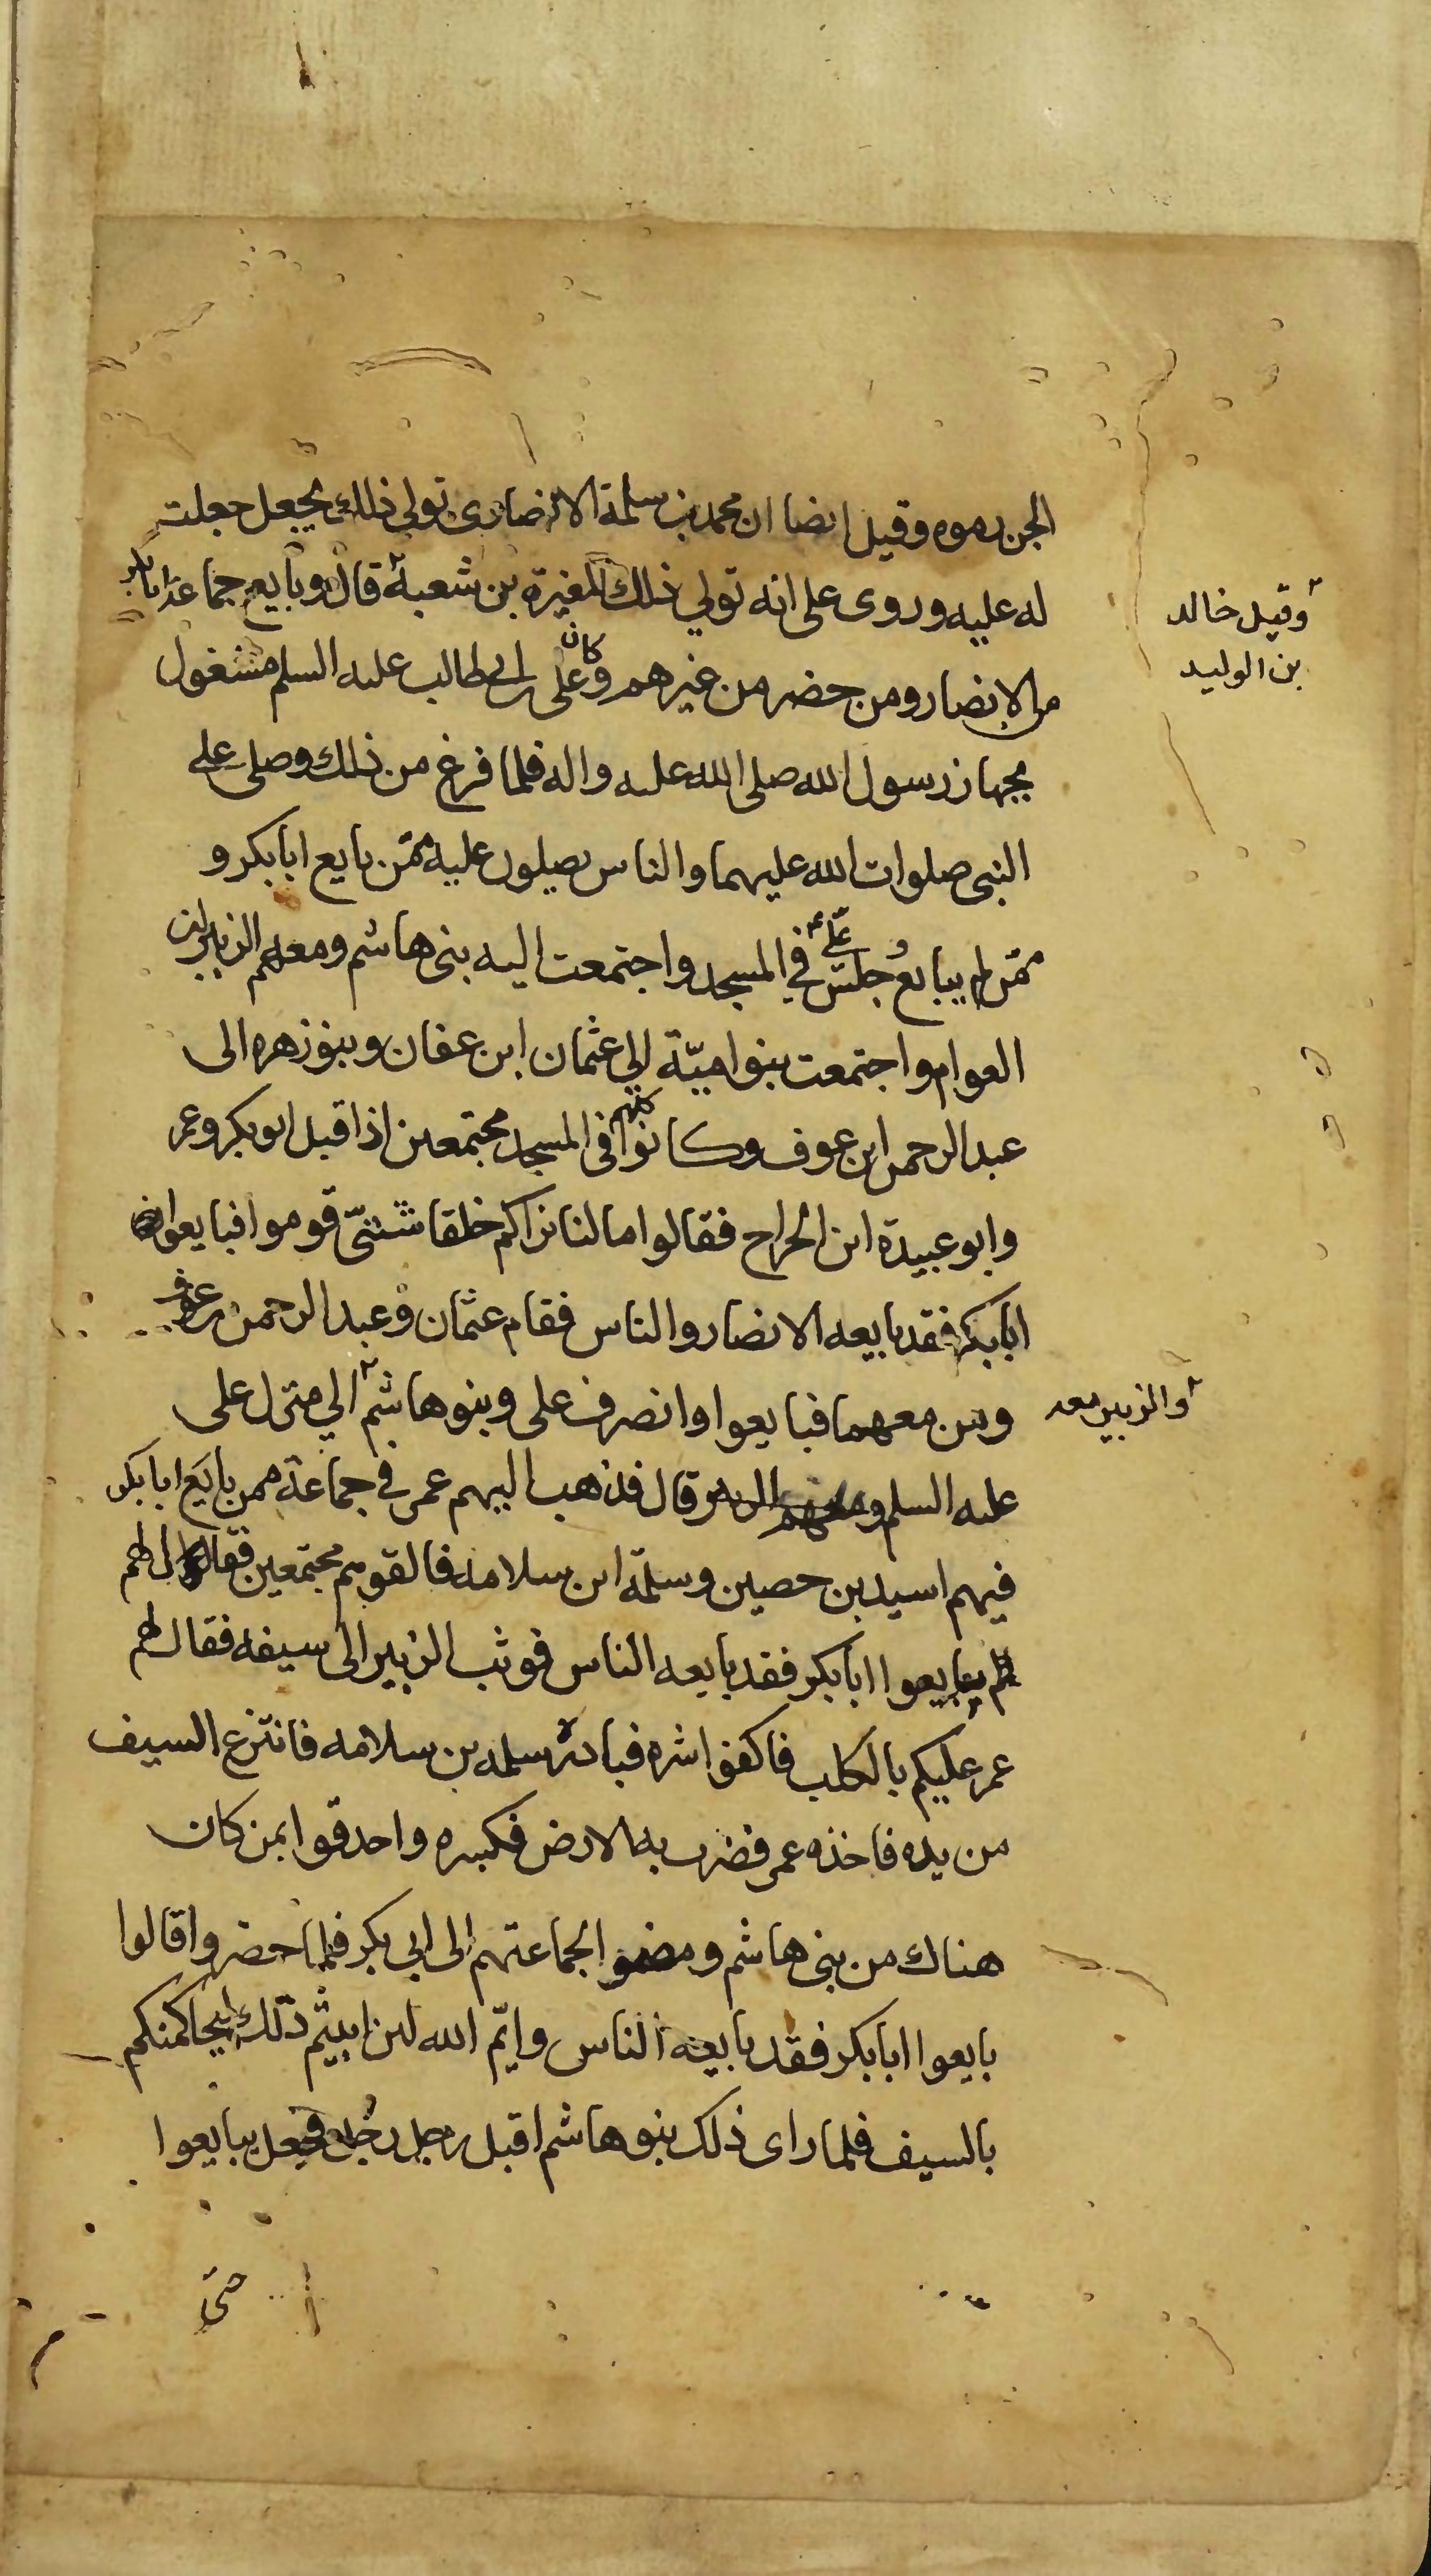 الجن رموه وقيل ايضا ان محمد بن سلمة الانصارى تولى ذلك بجعل جعلت
له عليه وروى على انه تولي ذلك المغيرة بن شعبة قال وبايع جماعة ابابكر
وقيل خالد
بن الوليد
من الانصار ومن حضر من غيرهم وكان على بن ابي طالب عليه السلم مشغول
بجهاز رسول الله صلى الله عليه واله فلما فرغ من ذلك وصلى على
النبى صلوات الله عليهما والناس يصلون عليه ممّن بايع ابابكر و
ممّن لم يبايع وجلس علىّ في المسجد واجتمعت اليه بنى هاشم ومعهم الزبير ابن
العوام واجتمعت بنو اميّة الي عثمان ابن عفان وبنو زهره الى
عبد الرحمن ابن عوف وكانوا كلهم فى المسجد مجتمعين اذا قبل ابو بكر وعمر
وابو عبيدة ابن الجراح فقالوا ما لنا نراكم خلقا شتىّ قوموا فبايعوا
ابابكر فقد بايعه الانصار والناس فقام عثمان وعبد الرحمن بن عوف
ومن معهما فبايعوا وانصرف على وبنو هاشم الي منزل على
والزبير معه
عليه السلم قال فذهب اليهم عمر في جماعة ممن بايع ابابكر
فيهم اسيد بن حصين وسلمة ابن سلامه فالقوهم مجتمعين فقال لهم
بايعوا ابابكر فقد بايعه الناس فوثب الزبير الى سيفه فقال لهم
عمر عليكم بالكلب فاكفوا شره فبادر سلمه بن سلامه فانتزع السيف
من يده فاخذه عمر فضرب به الارض فكسره واحدقوا بمن كان
هناك من بنى هاشم ومضوا بجماعتهم الى ابي بكر فلما حضروا قالوا
بايعوا ابابكر فقد بايعه الناس وايّم الله لئن ابيتم ذلك لنحاكمنكم
بالسيف فلما راى ذلك بنو هاشم اقبل رجل رجل فجعل يبايعوا
حتى